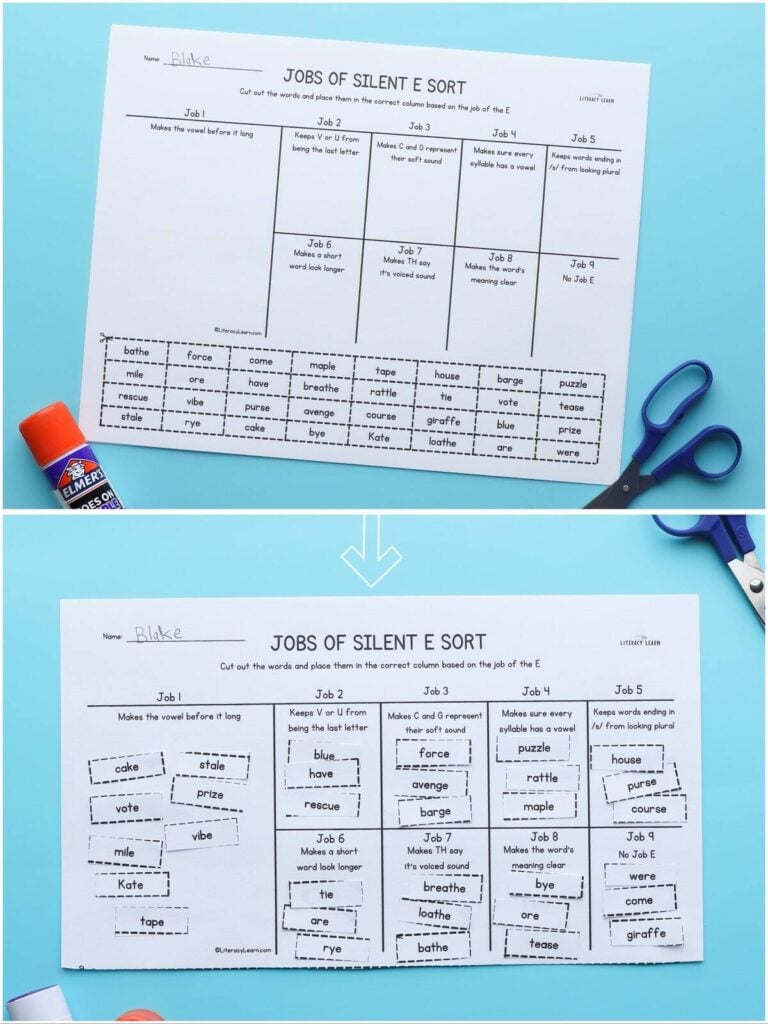 Name: Blake
JOBS OF SILENT E SORT
LITERACY LEARN
Cut out the words and place them in the correct column based on the job of the E
Job 1
Makes the vowel before it long
Job 2
Keeps V or U from
being the last letter
Job 3
Makes C and G represent
their soft sound
Job 4
Makes sure every
syllable has a vowel
Job 5
Keeps words ending in
/s/ from looking plural
Job 6
Makes a short
word look longer
Job 7
Makes TH say
it's voiced sound
Job 8
Makes the word's
meaning clear
Job 9
No Job E
©LiteracyLearn.com
bathe force come maple tape house barge puzzle
mile ore have breathe rattle tie vote tease
rescue vibe purse avenge course giraffe blue prize
stale rye cake bye Kate loathe are were
ELMER'S
Name: Blake
JOBS OF SILENT E SORT
LITERACY LEARN
Cut out the words and place them in the correct column based on the job of the E
Job 1
Makes the vowel before it long
cake stale
prize
vote
vibe
mile
Kate
tape
©LiteracyLearn.com
Job 2
Keeps V or U from
being the last letter
blue
have
rescue
Job 3
Makes C and G represent
their soft sound
force
avenge
barge
Job 4
Makes sure every
syllable has a vowel
puzzle
rattle
maple
Job 5
Keeps words ending in
/s/ from looking plural
house
purse
course
Job 6
Makes a short
word look longer
tie
are
rye
Job 7
Makes TH say
it's voiced sound
breathe
loathe
bathe
Job 8
Makes the word's
meaning clear
bye
ore
tease
Job 9
No Job E
were
come
giraffe